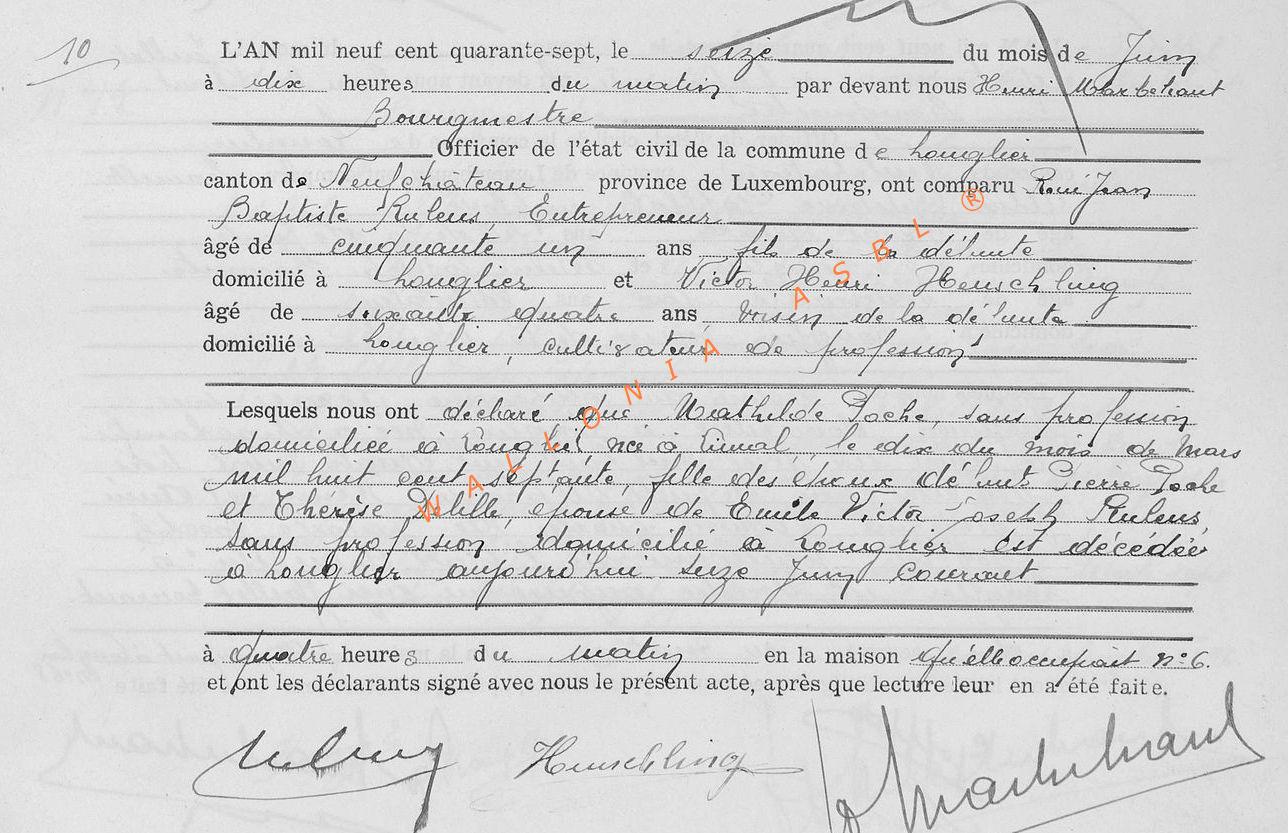 10
L'AN mil neuf cent quarante-sept, le seize du mois de Juin
à dix heures du matin par devant nous Henri Marbehant
Bourgmestre
Officier de l'état civil de la commune de Longlier
canton de Neufchâteau province de Luxembourg, ont comparu René Jean
Baptiste Rulens Entrepreneur
âgé de cinquante un ans fils de la défunte
domicilié à Longlier et Victor Henri Heuschling
âgé de soixante quatre ans, voisin de la défunte
domicilié à Longlier, cultivateur de profession
Lesquels nous ont déclaré que Mathilde Poche, sans profession
domiciliée à Longlier, née à le dix du mois de Mars
mil huit cent septante, fille des époux défunts Pierre Poche
et Thérèse Delille, épouse de Emile Victor Joseph Rulens,
sans profession domicilié à Longlier est décédée
à Longlier aujourd'hui seize Juin courant
à quatre heures du matin en la maison qu'elle occupait n° 6.
et ont les déclarants signé avec nous le présent acte, après que lecture leur en a été faite.
Heuschling
WALLONIA ASBL ®